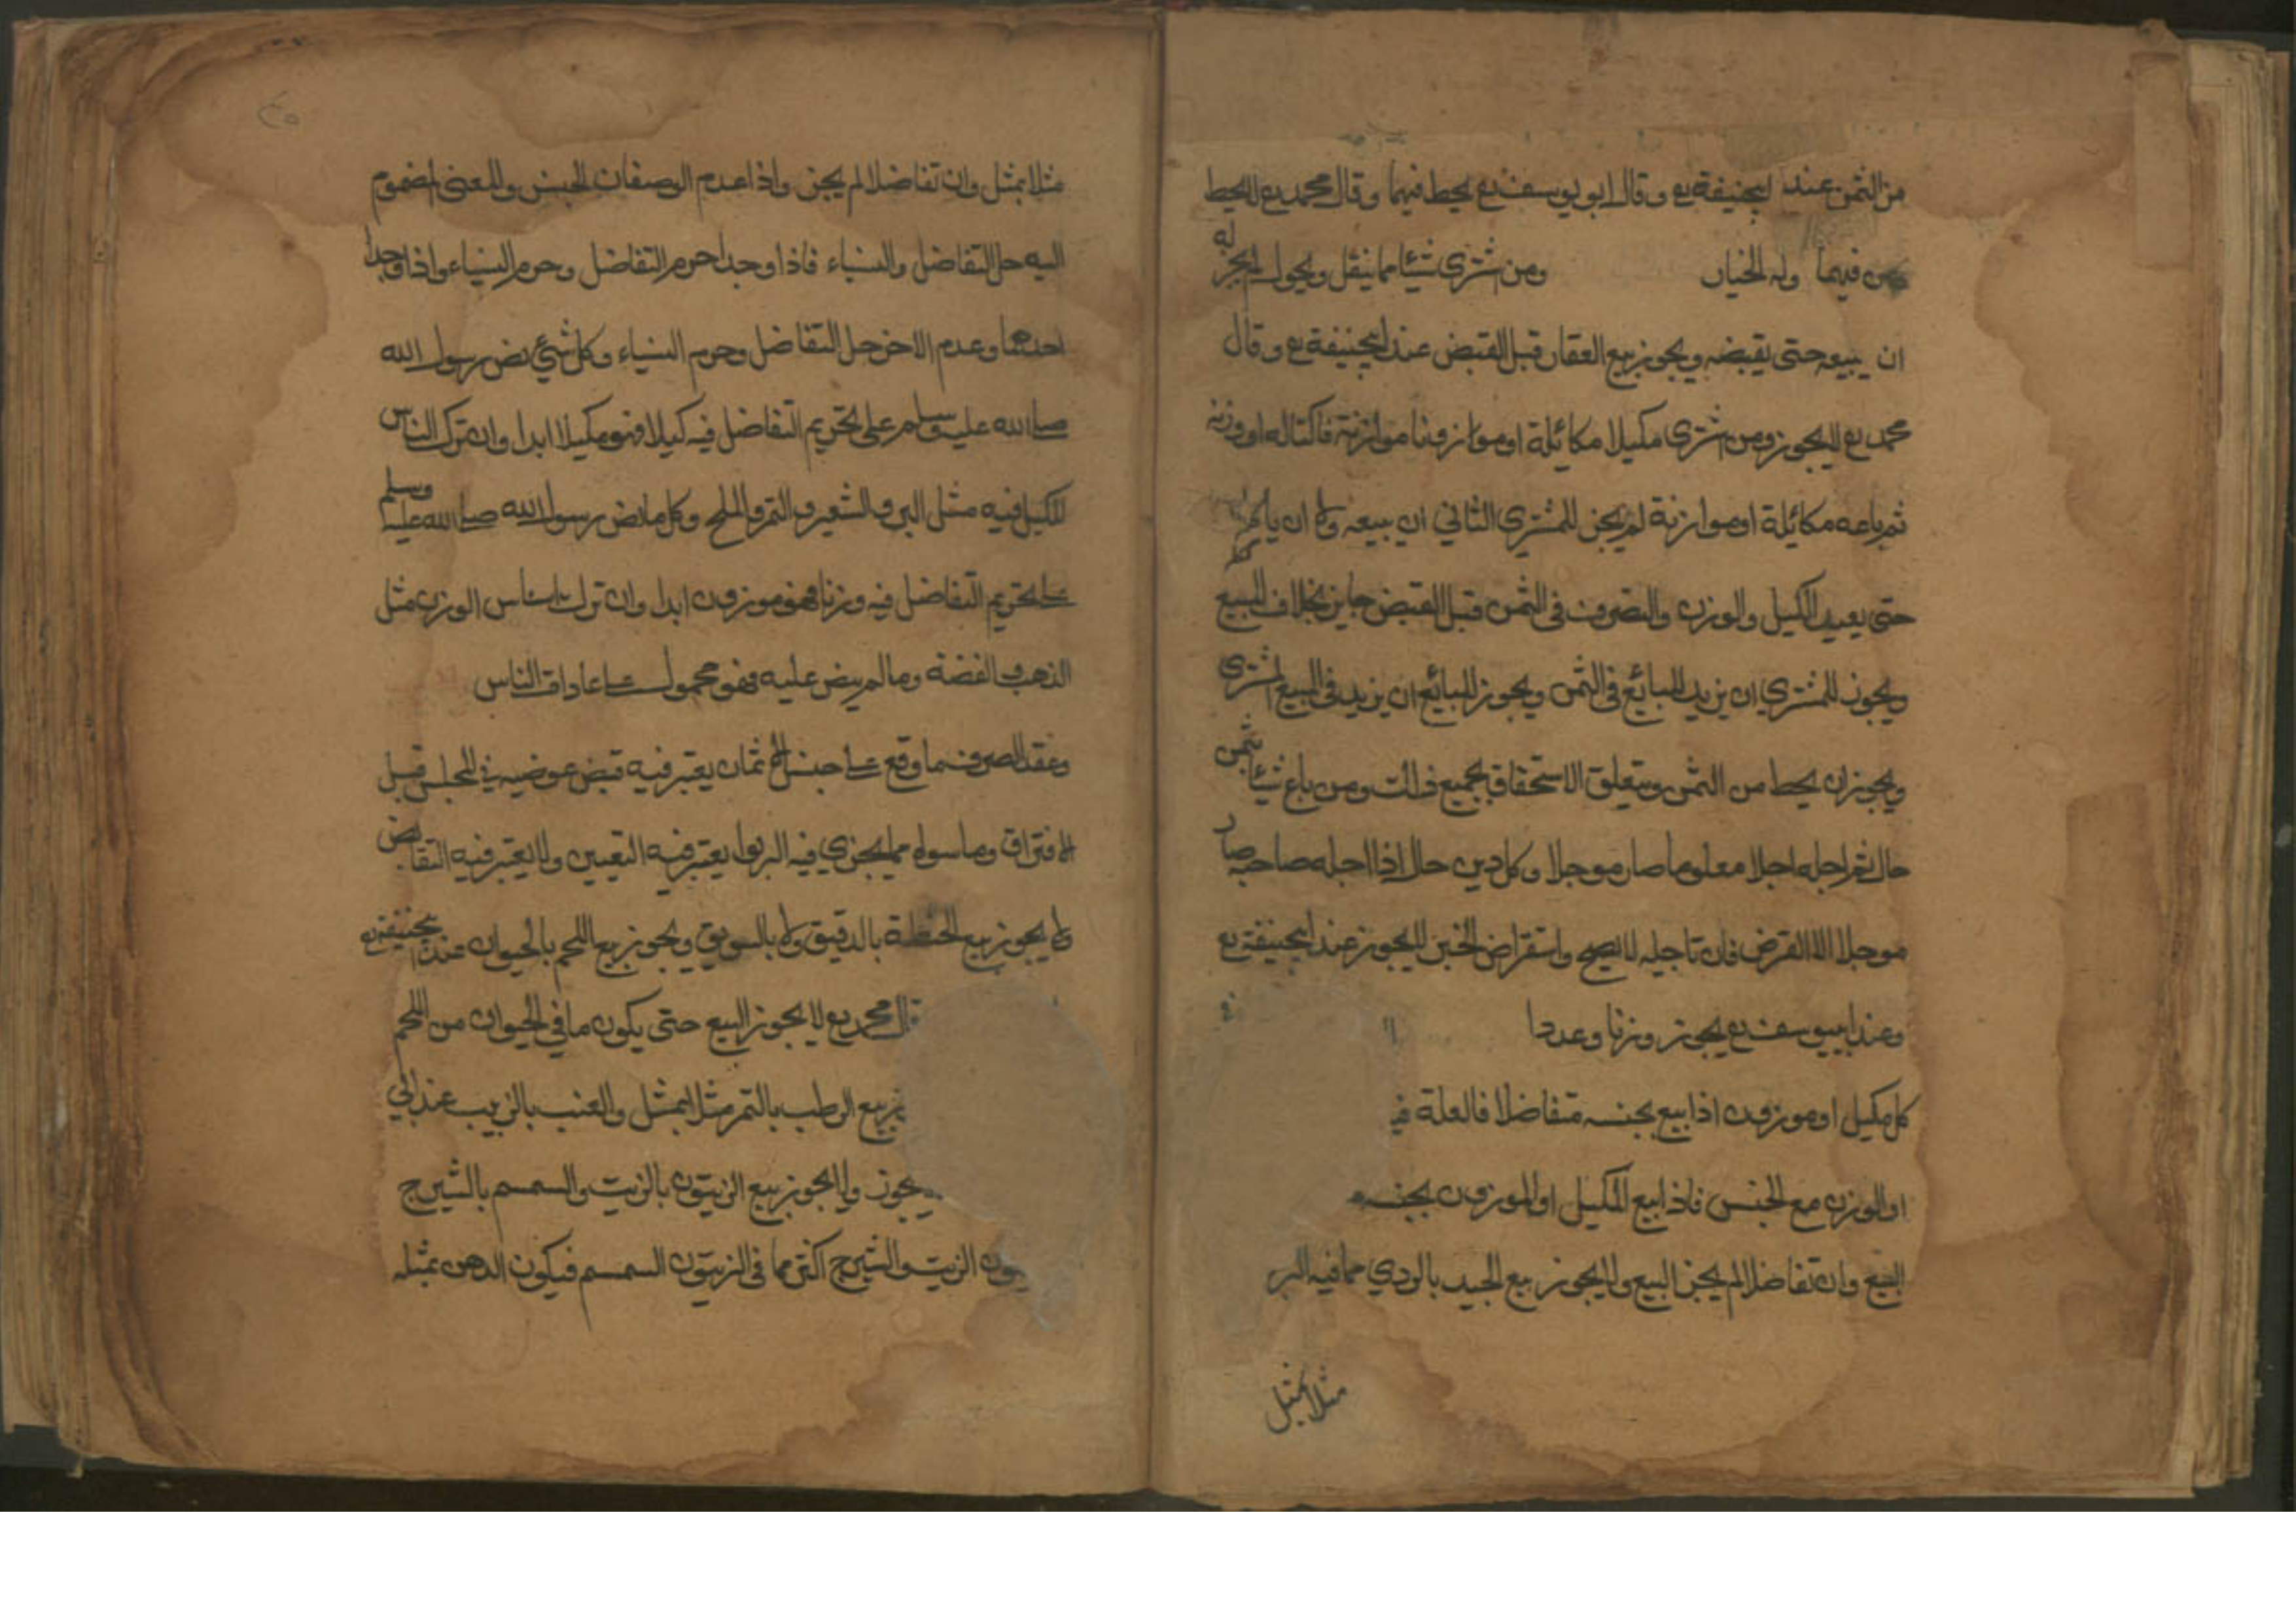 من الثمن عند ابيحنيفة رح و قال ابو يوسف رح يحط فيهما وقال محمد رح لا يحط
فيهما وله الخيار ومن شترى شيئا مما ينقل ويحول لم يجز له
ان يبيعه حتى يقبضه ويجوز بيع العقار قبل القبض عند ابيحنيفة رح وقال
محمد رح لا يجوز ومن اشترى مكيلا مكائلة او موازونا موازنة فاكتاله او وزنه
ثم باعه مكائلة او موازنة لم يجز للمشتري الثاني ان يبيعه ولا ان ياكله
حتى يعيد الكيل والوزن والتصرف في الثمن قبل القبض جايز بخلاف المبيع
ويجوز للمشتري ان يزيد للبائع في الثمن ويجوز للبائع ان يزيد في المبيع المشتري
ويجوز ان يحط من الثمن ويتعلق الاستحقاق بجميع ذلك ومن باع شيئا بثمن
حال ثم اجله اجلا معلوما صار موجلا وكل دين حال اذا اجله صاحبه صار
موجلا الا القرض فان تاجيله لا يصح واستقراض الخبز لا يجوز عند ابيحنيفة رح
وعند ابييوسف رح يجوز وزنا وعددا
كل مكيل او موزون اذا بيع بجنسه متفاضلا فالعلة
او الوزن مع الجنس فاذا بيع المكيل او الموزون بجنسه
البيع وان تفاضلا لم يجز البيع ولا يجوز بيع الجيد بالردي مما فيه الربو
مثلا بمثل
مثلا بمثل وان تفاضلا لم يجز واذا عدم الوصفان الجنس والمعنى المضموم
اليه حل التفاضل والنساء فاذا وجدا حرم التفاضل وحرم النساء واذا وجد
احدهما وعدم الاخر حل التفاضل وحرم النساء وكل شيء نص رسول الله
صلى الله عليه وسلم على تحريم التفاضل فيه كيلا فهو مكيلا ابدا وان ترك الناس
الكيل فيه مثل البر والشعير والتمر والملح وكل ما نص رسول الله صلى الله عليه وسلم
على تحريم التفاضل فيه وزنا فهو موزون ابدا وان ترك الناس الوزن مثل
الذهب والفضة وما لم ينص عليه فهو محمول على عادات الناس
وعقد الصرف ما وقع على جنس الاثمان يعتبر فيه قبض عوضيه في المجلس قبل
الافتراق وما سواه مما يجزي فيه الربوا يعتبر فيه التعيين ولا يعتبر فيه التقابض
ولا يجوز بيع الحنطة بالدقيق ولا بالسويق ويجوز بيع اللحم بالحيوان عند ابيحنيفة رح
قال محمد رح لا يجوز البيع حتى يكون ما في الحيوان من اللحم
بيع الرطب بالتمر مثلا بمثل والعنب بالزبيب عند ابي
يجوز ولا يجوز بيع الزيتون بالزيت والسمسم بالشيرج
يكون الزيت والشيرج اكثر مما في الزيتون السمسم فيكون الدهن بمثله